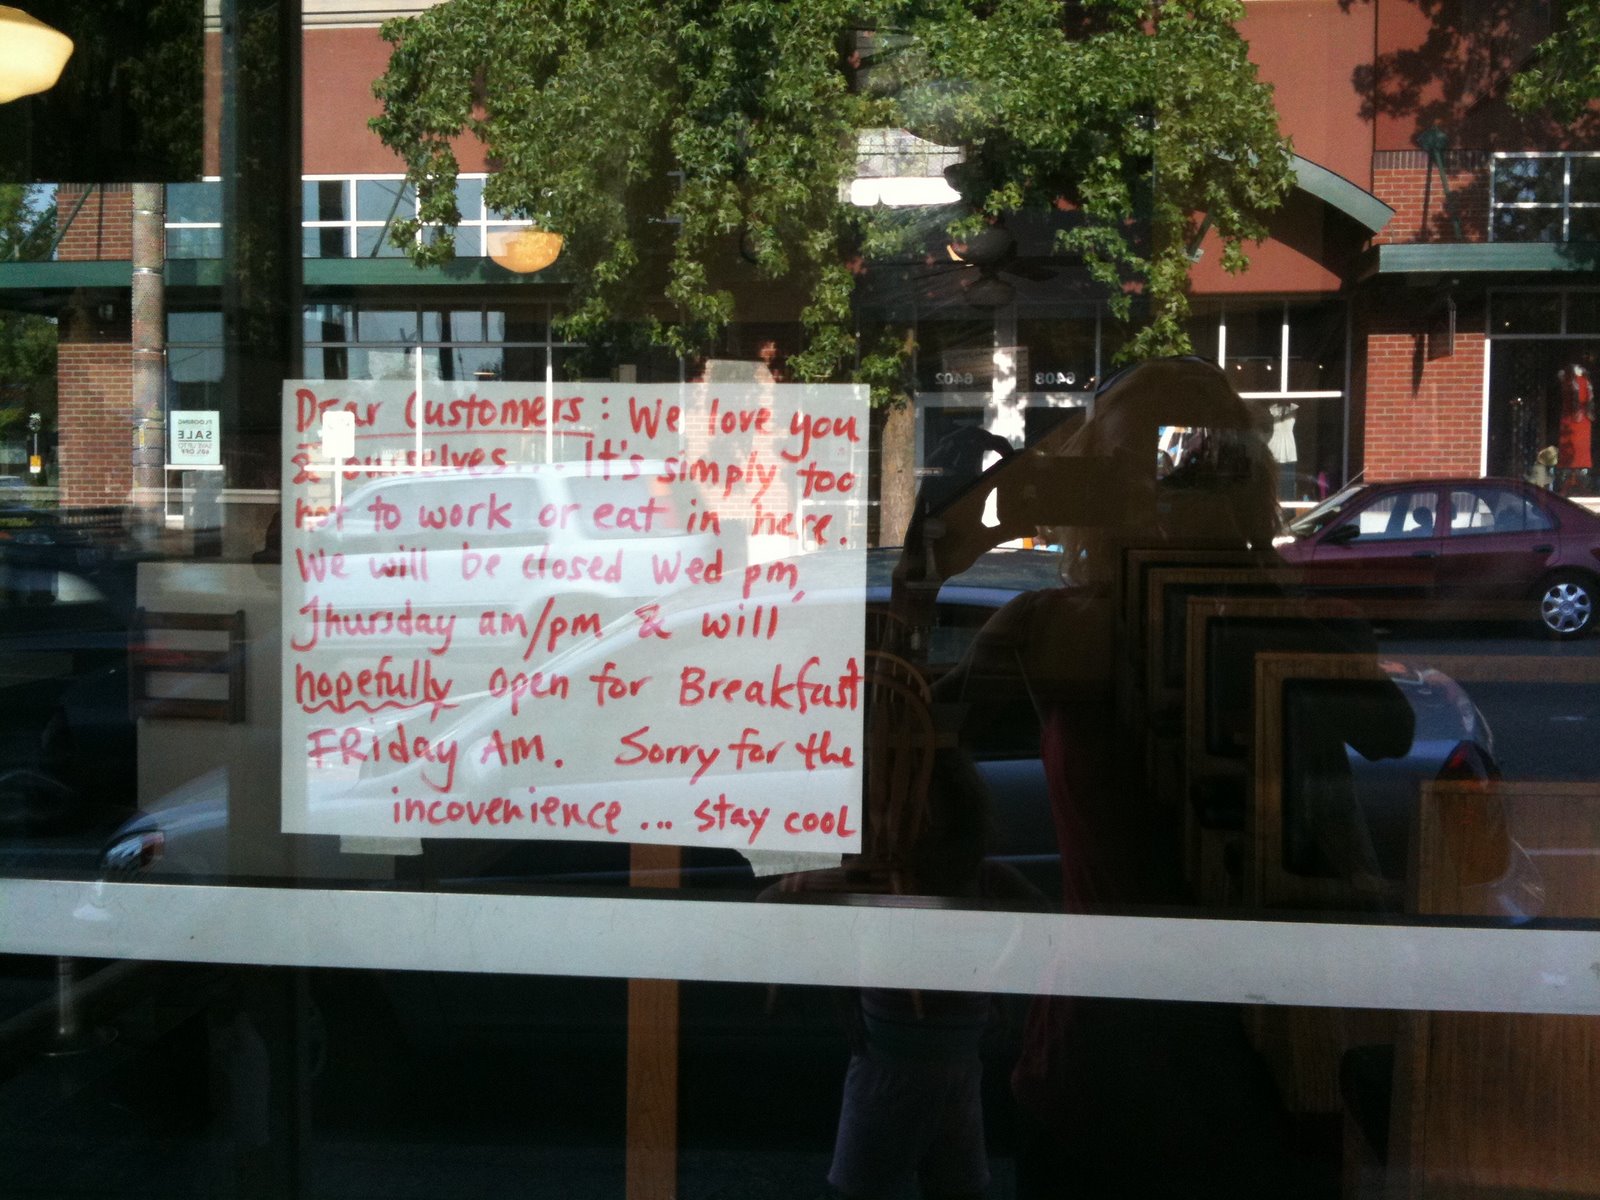 Dear Customers: We love you
& ourselves... It's simply too
hot to work or eat in here.
We will be closed Wed pm,
Thursday am/pm & will
hopefully open for Breakfast
FRiday AM. Sorry for the
incovenience... stay cool
FLOORING
SALE
SAVE UP TO
60% OFF
6402
6408